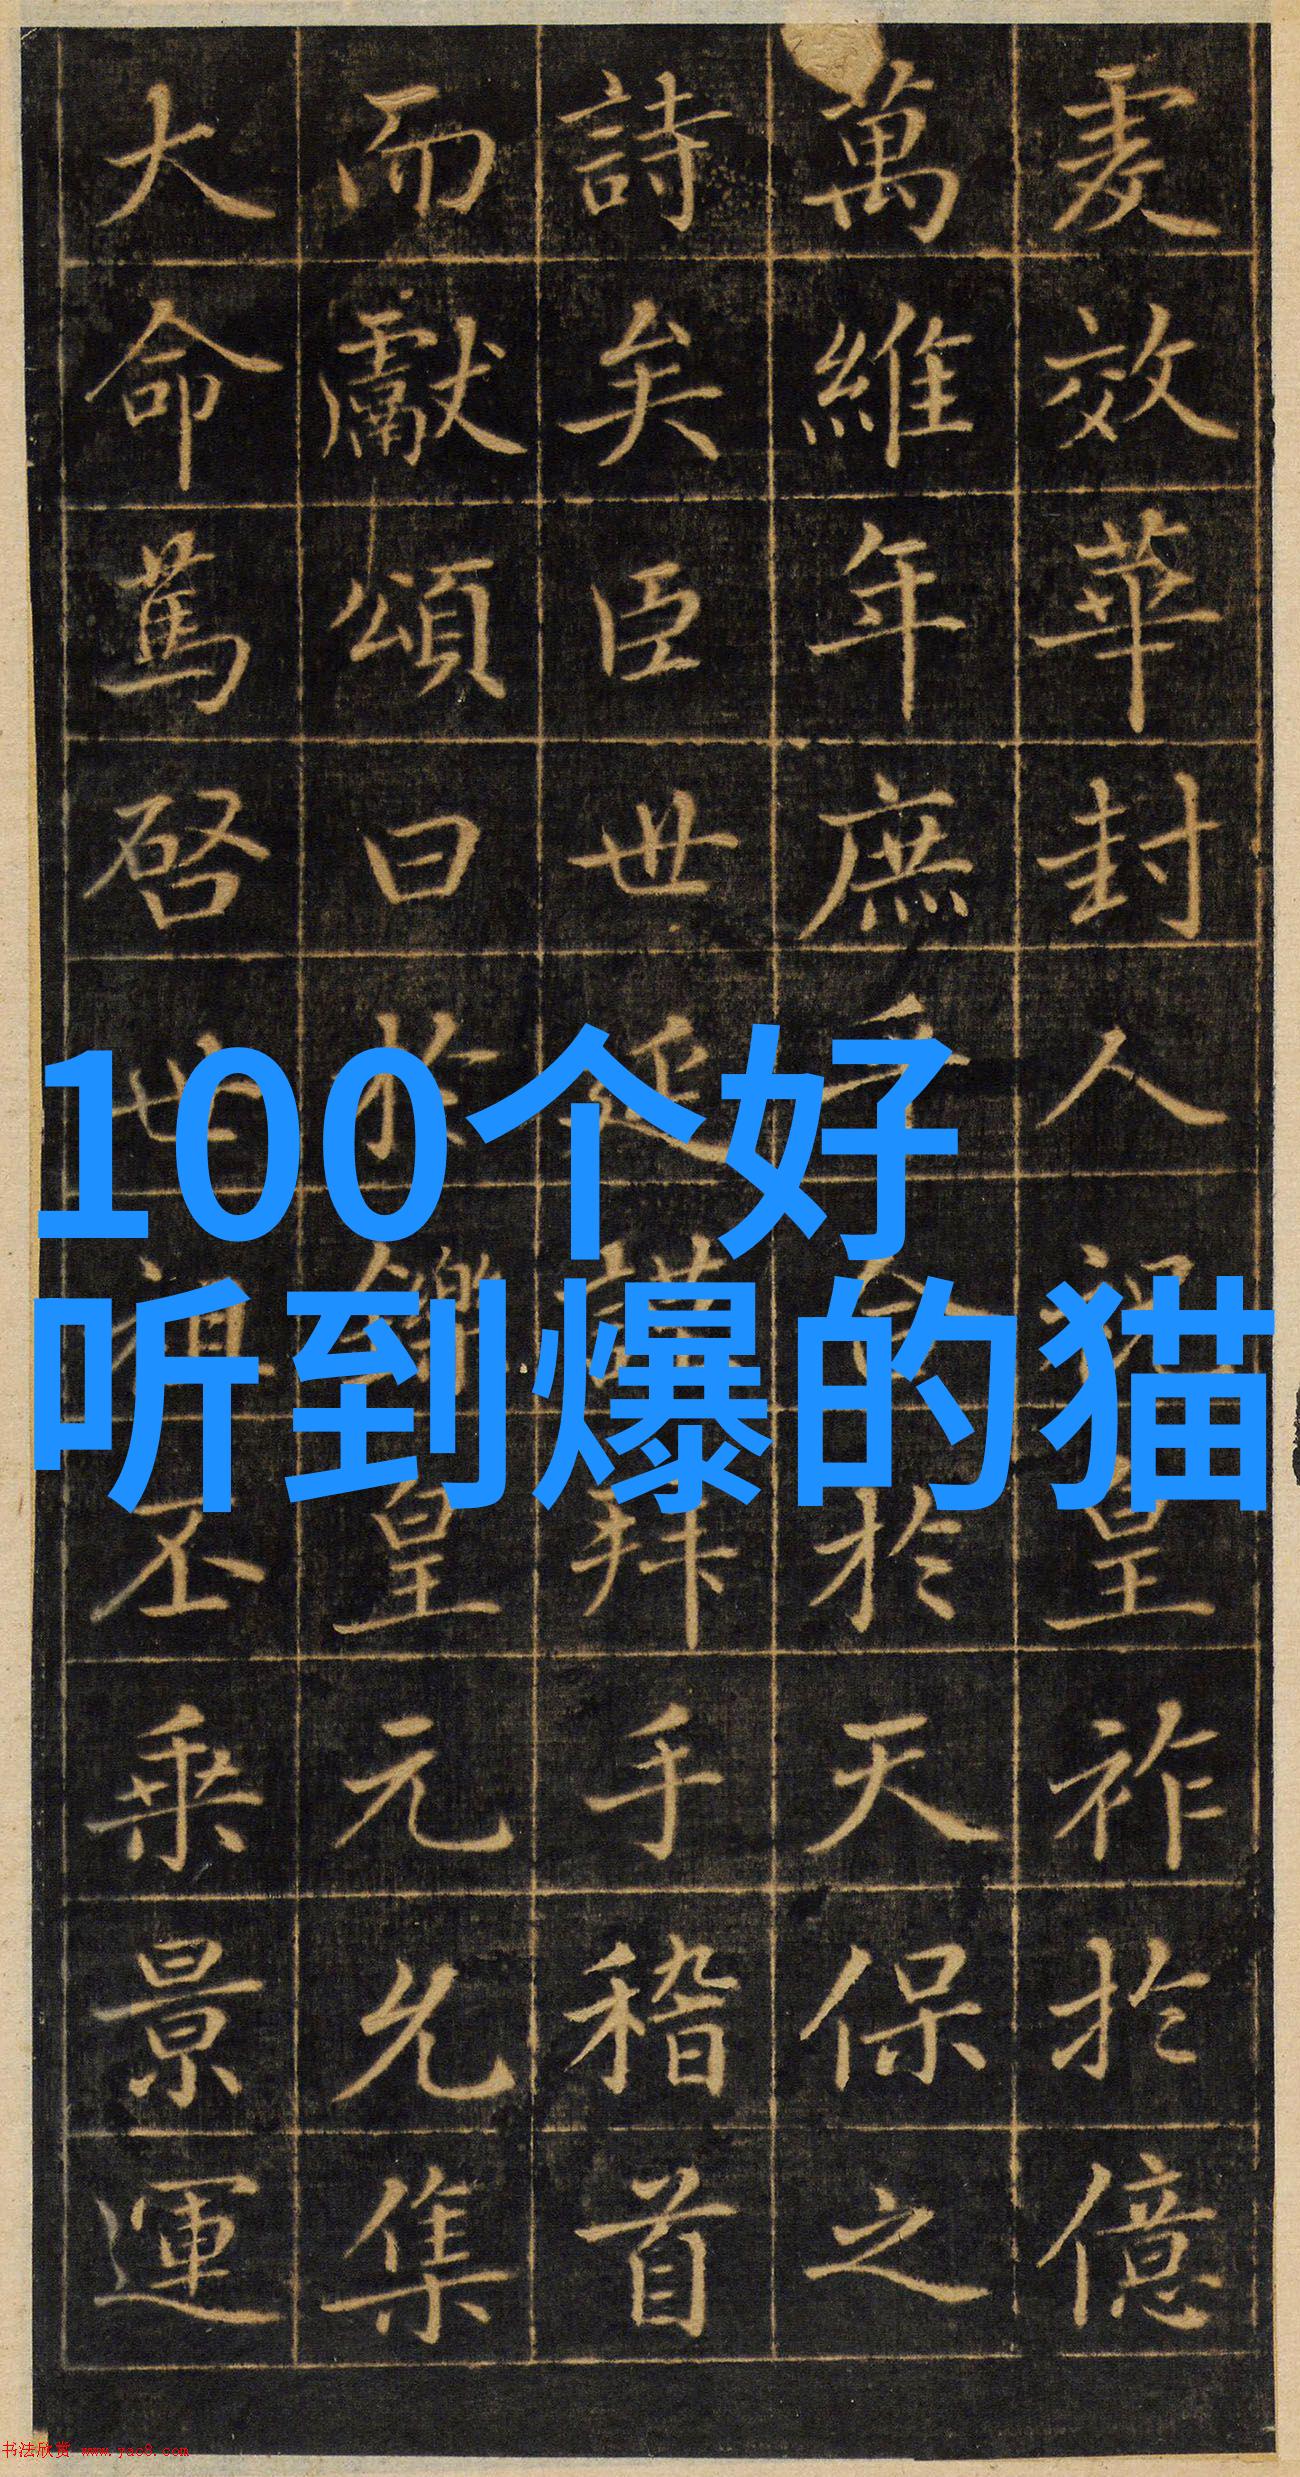 效華封人祝皇祚於億
萬維年庶乎合於天保之
詩矣臣世延謹拜手稽首
而獻頌曰於鑠皇元允集
大命篤啓世祖丕乘景運
100个好
听到爆的猫
书法欣赏 www.yac8.com